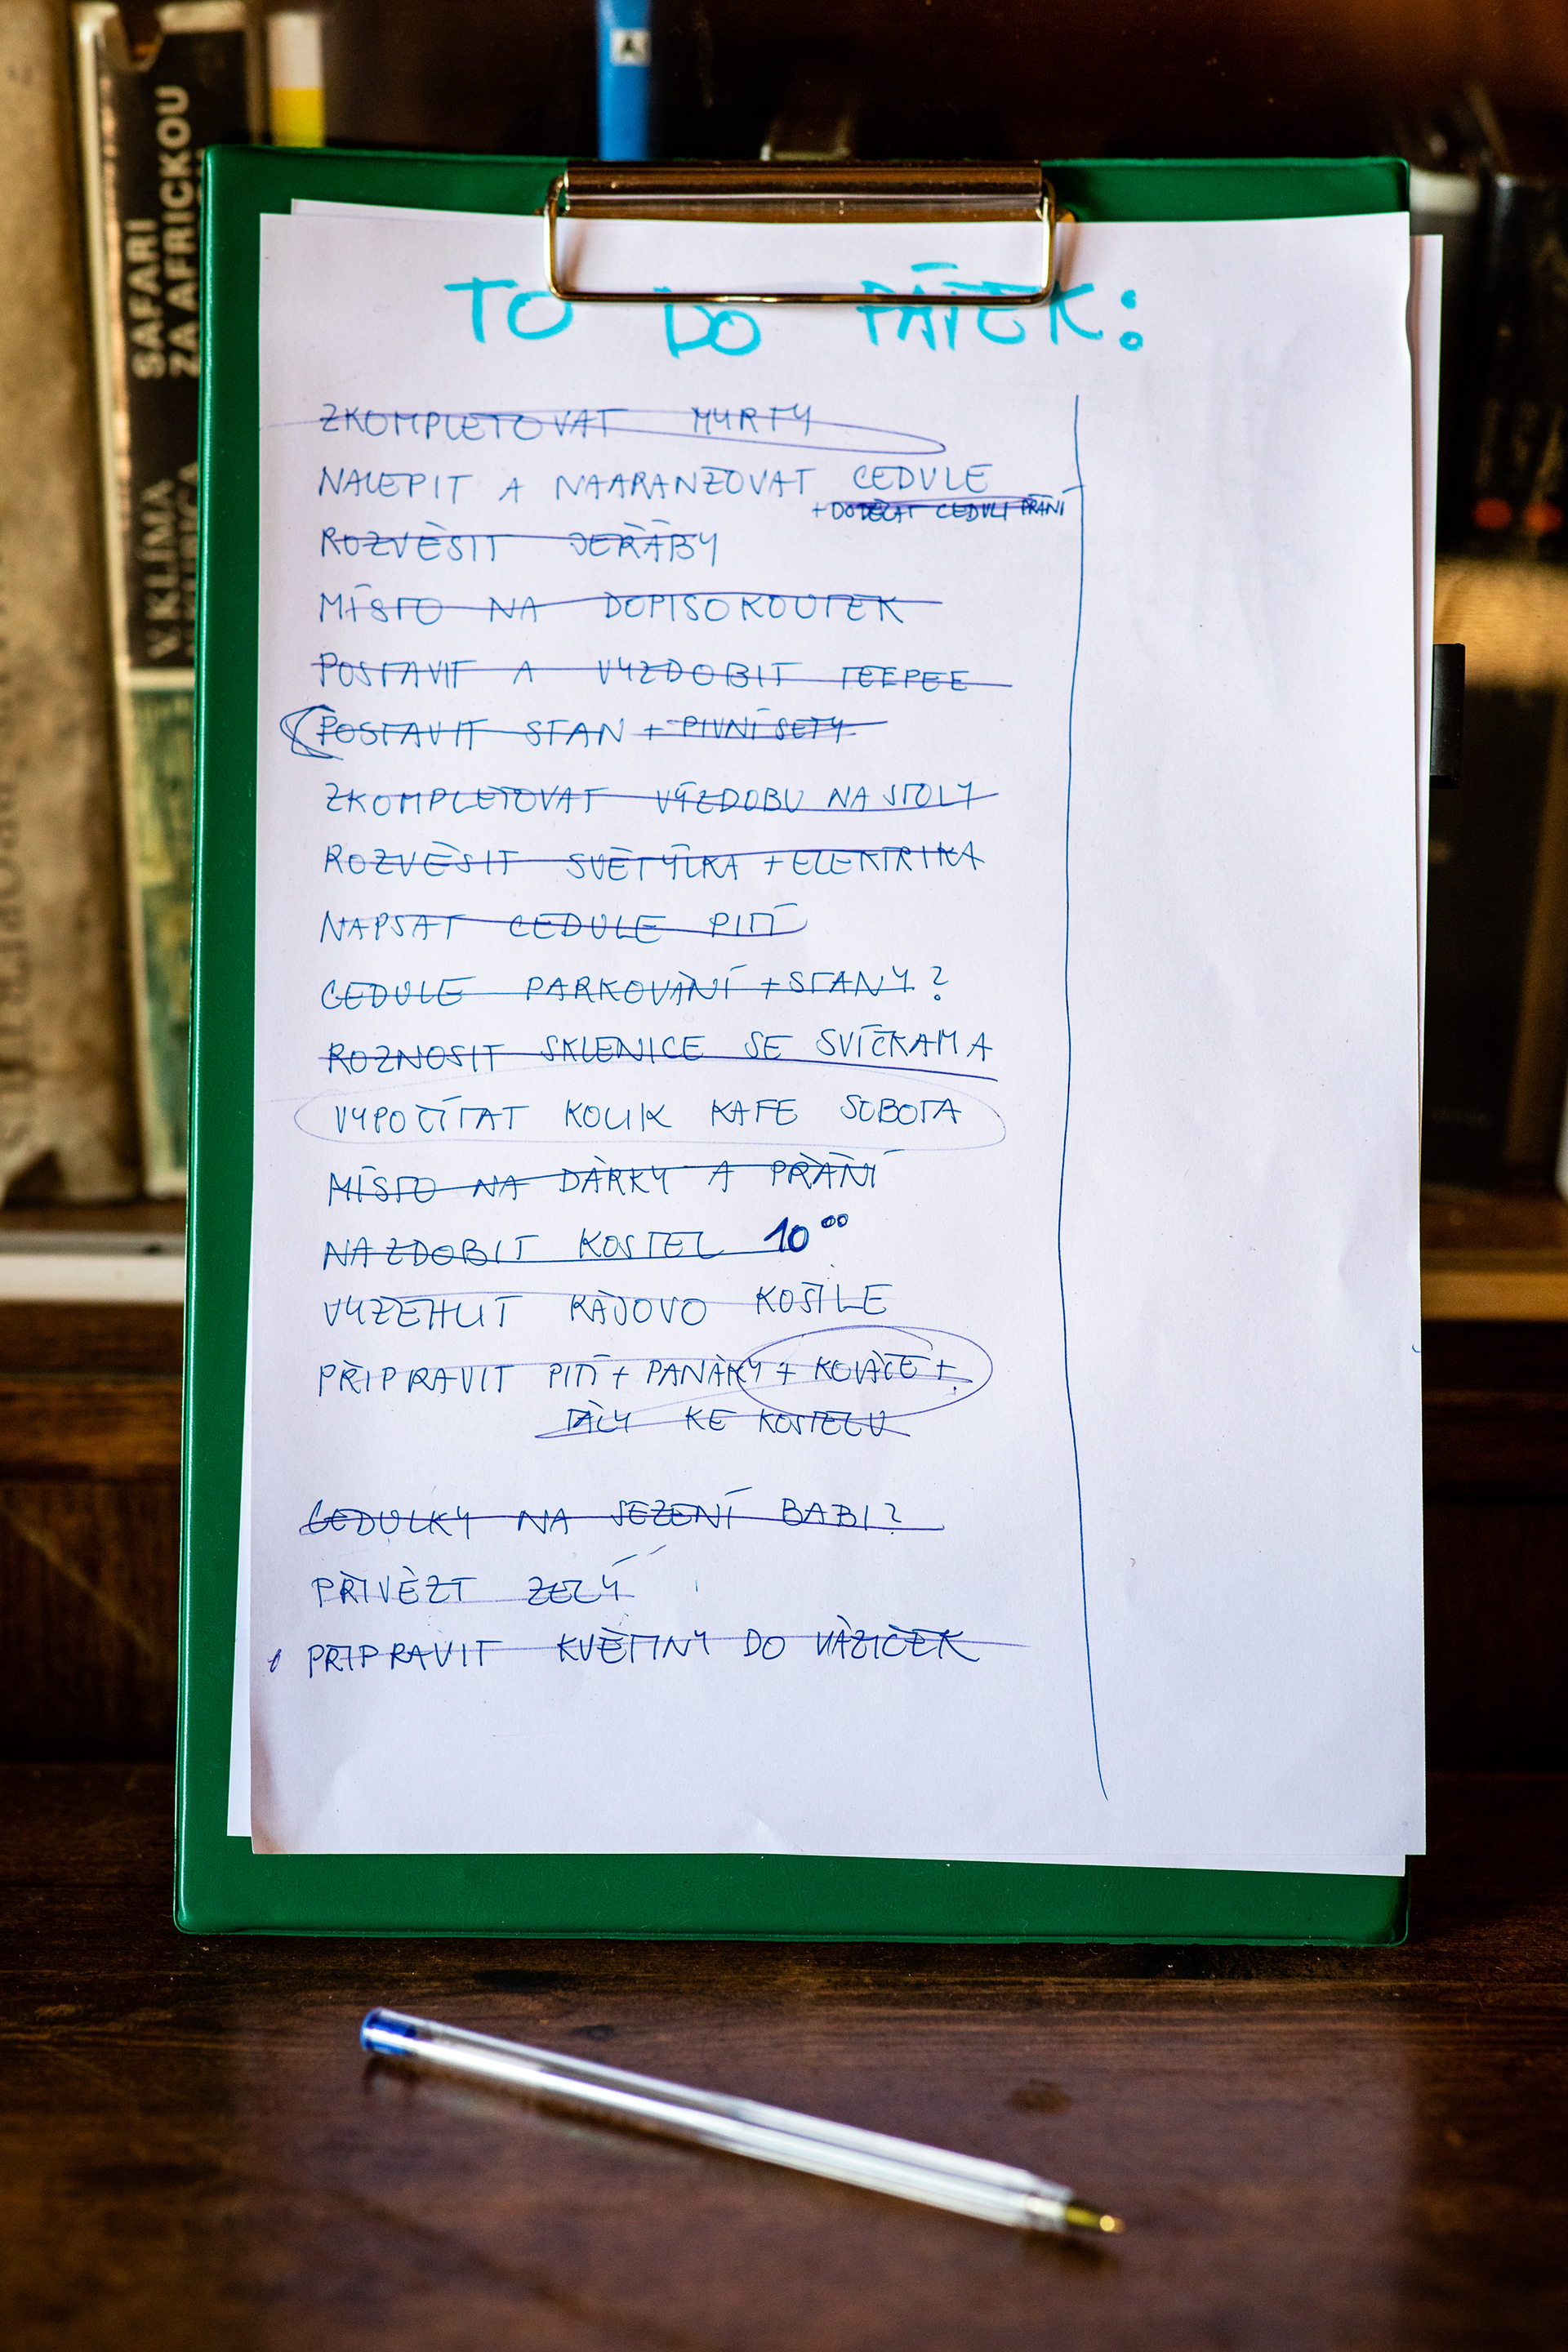 SAFARI
ZA AFRICKOU
V. KLÍMA
A5
TO DO PÁTEK:
ZKOMPLETOVAT MYRTY
NALEPIT A NAARANŽOVAT CEDULE
+ DODĚLAT CEDULI PŘÁNÍ
ROZVĚSIT JEŘÁBY
MÍSTO NA DOPISOKOUTEK
POSTAVIT A VYZDOBIT TEEPEE
POSTAVIT STAN + PIVNÍ SETY
ZKOMPLETOVAT VÝZDOBU NA STOLY
ROZVĚSIT SVĚTÝLKA + ELEKTRIKA
NAPSAT CEDULE PITÍ
CEDULE PARKOVÁNÍ + STANY?
ROZNOSIT SKLENICE SE SVÍČKAMA
VYPOČÍTAT KOLIK KAFE SOBOTA
MÍSTO NA DÁRKY A PŘÁNÍ
NAZDOBIT KOSTEL 10⁰⁰
VYŽEHLIT KÁJOVO KOŠILE
PŘIPRAVIT PITÍ + PANÁKY + KOLÁČE +
TÁCY KE KOSTELU
CEDULKY NA SEZENÍ BABI?
PŘIVÉZT ZELÍ
PŘIPRAVIT KVĚTINY DO VÁZIČEK